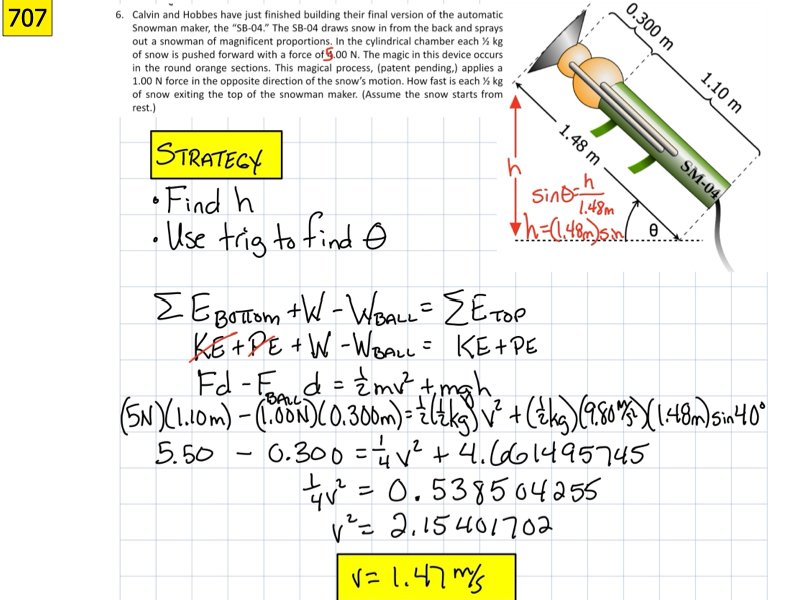 707
6. Calvin and Hobbes have just finished building their final version of the automatic
Snowman maker, the “SB-04.” The SB-04 draws snow in from the back and sprays
out a snowman of magnificent proportions. In the cylindrical chamber each ½ kg
of snow is pushed forward with a force of 5.00 N. The magic in this device occurs
in the round orange sections. This magical process, (patent pending,) applies a
1.00 N force in the opposite direction of the snow’s motion. How fast is each ½ kg
of snow exiting the top of the snowman maker. (Assume the snow starts from
rest.)
0.300 m
1.10 m
1.48 m
SM-04
h
sinθ=h/1.48m
h=(1.48m)sin
θ
STRATEGY
• Find h
• Use trig to find θ
ΣE BOTTOM + W - W BALL = ΣE TOP
KE + PE + W - W BALL = KE + PE
Fd - F BALL d = ½mv² + mgh
(5N)(1.10m) - (1.00N)(0.300m) = ½(½kg)v² + (½kg)(9.80 m/s²)(1.48m)sin40°
5.50 - 0.300 = ¼v² + 4.661495745
¼v² = 0.538504255
v² = 2.15401702
v = 1.47 m/s